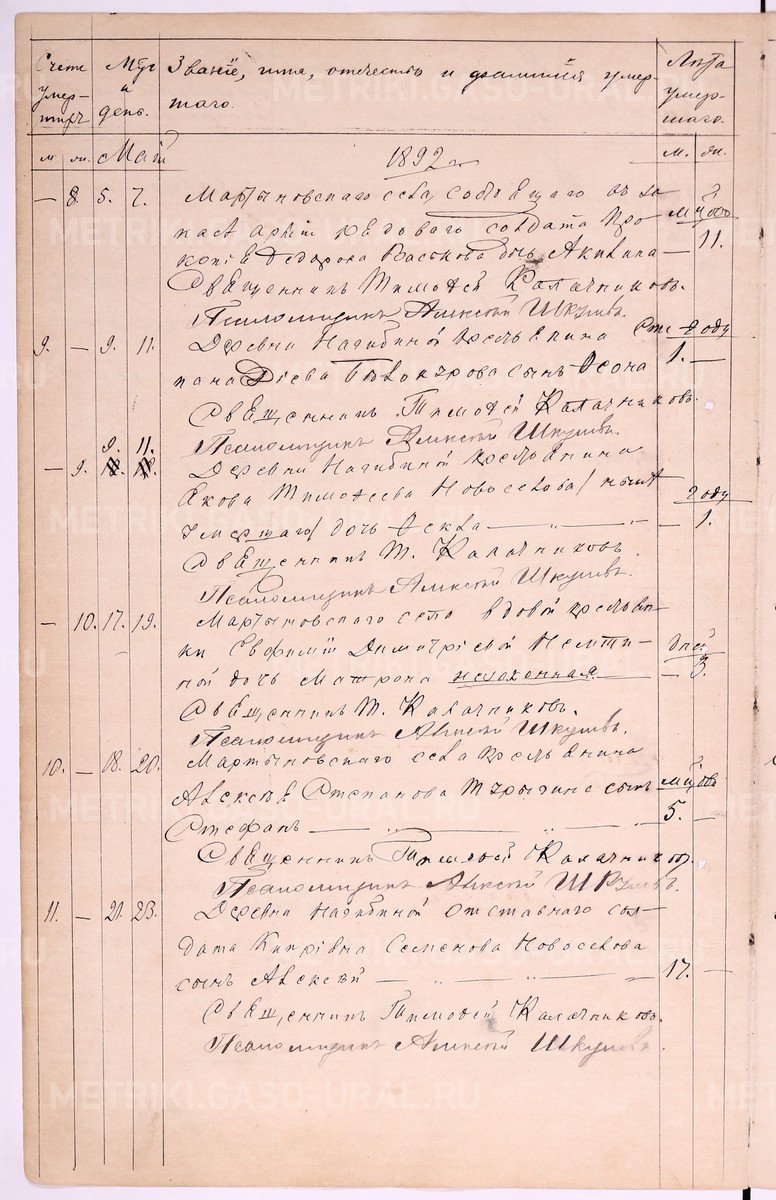 Счетъ умер-шихъ
Мѣс. и день.
Званіе, имя, отечество и фамилія умер-
шаго.
Лѣта умер-шаго.
м. ж. Май 1892 г. м. ж.
— 8. 5. 7. Мартыновскаго села, состоящаго въ за
пасѣ арміи рядоваго солдата Про- м-цовъ
копія Федорова Васькова дочь Акилина — 11.
Священникъ Тимофей Калачниковъ.
Псаломщикъ Алексѣй Шкулевъ.
9. — 9. 11. Деревни Нагибиной крестьянина Сте- году
пана Діева Бѣлокурова сынъ Іона 1. —
Священникъ Тимофей Калачниковъ.
9. 11. Псаломщикъ Алексѣй Шкулевъ.
— 9. Деревни Нагибиной крестьянина
Якова Тимофеева Новоселова /нынѣ году
умершаго/ дочь — " — " — 1.
Священникъ Т. Калачниковъ.
Псаломщикъ Алексѣй Шкулевъ.
— 10. 17. 19. Мартыновскаго села вдовой крестьян-
ки Евфиміи Димитріевой дней
ной дочь Матрона незаконная — 3.
Священникъ Т. Калачниковъ.
Псаломщикъ Алексѣй Шкулевъ.
10. — 18. 20. Мартыновскаго села крестьянина
Алексѣя Степанова сынъ м-цовъ
Стефанъ — " — " — 5. —
Священникъ Тимофей Калачниковъ.
Псаломщикъ Алексѣй Шкулевъ.
11. — 21. 23. Деревни Нагибиной отставнаго сол-
дата Кипріана Семенова Новоселова
сынъ Алексѣй — " — " — 17. —
Священникъ Тимофей Калачниковъ.
Псаломщикъ Алексѣй Шкулевъ.
METRIKI.GASO-URAL.RU